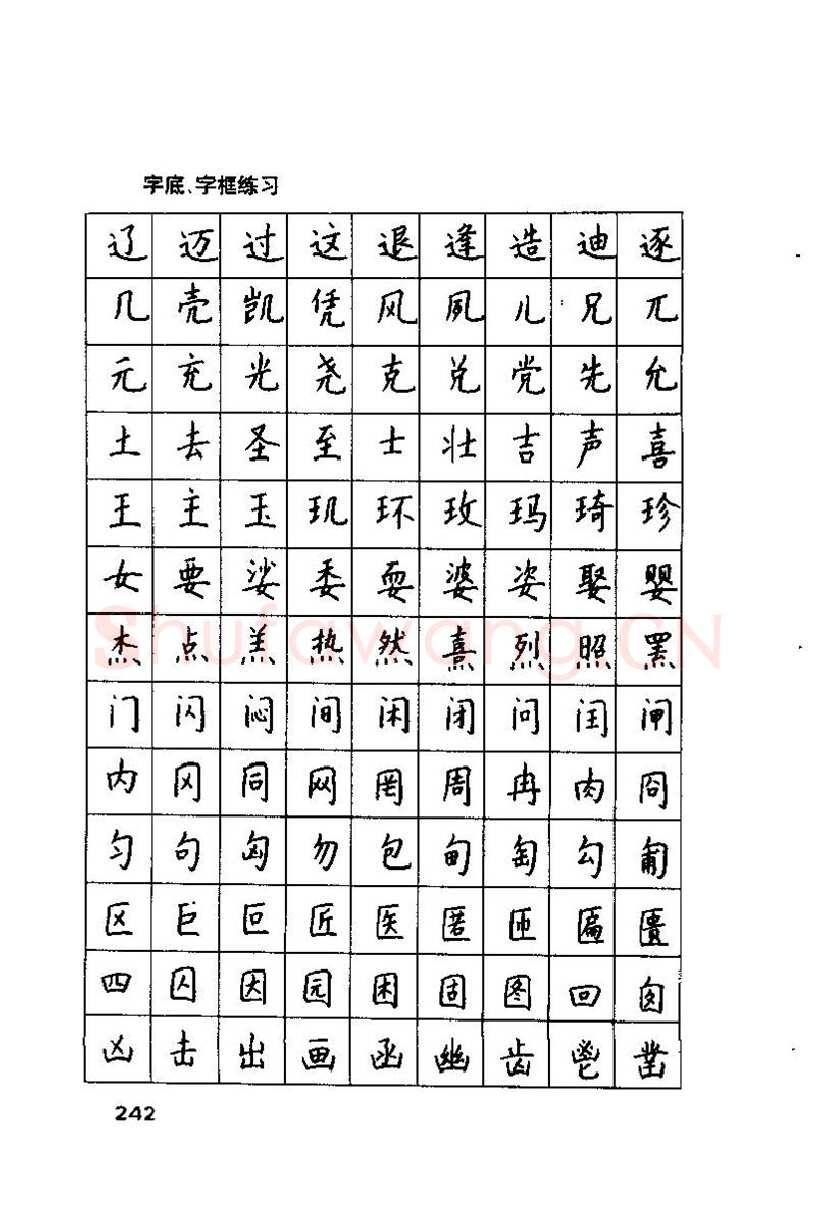 字底、字框练习
辽 迈 过 这 退 逢 造 迪 逐
几 壳 凯 凭 风 凰 儿 兄 兀
元 充 光 尧 克 兑 党 先 允
土 去 圣 至 士 壮 吉 声 喜
王 主 玉 玑 环 玫 玛 琦 珍
女 要 娑 委 耍 婆 姿 娶 婴
杰 点 羔 热 然 熹 烈 照 罴
门 闪 闷 间 闲 闭 问 闰 闸
内 冈 同 网 罔 周 冉 肉 冏
匀 句 匈 勿 包 甸 匋 勾 匍
区 巨 叵 匠 医 匿 匝 匾 匮
四 囚 因 园 困 固 图 回 囱
凶 击 出 画 函 幽 齿 鬯 凿
Shufawang.CN
242